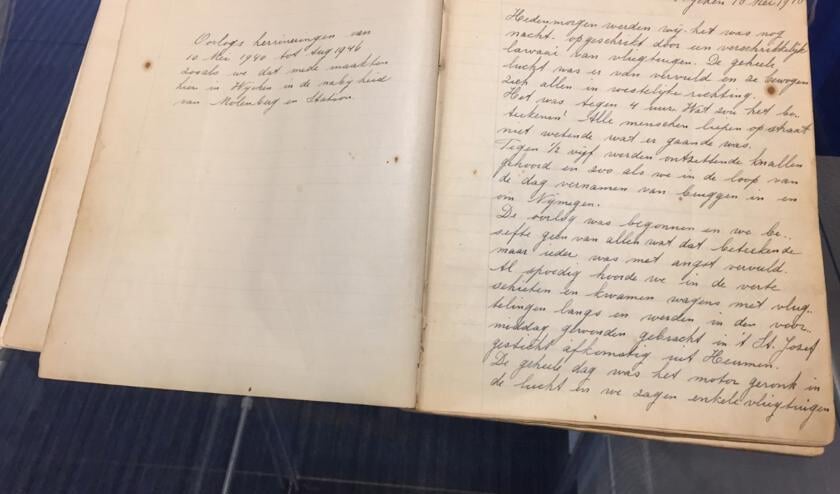 Oorlogs herrineringen van
10 Mei 1940 tot Aug 1946
zooals we dat mede maakten
hier in Wijchen in de nabijheid
van Molenberg en Station.
10 Mei 1940
Hedenmorgen werden wij het was nog
nacht. opgeschrikt door een verschrikkelijk
lawaai van vliegtuigen. De geheele
lucht was er van vervuld en ze bewogen
zich allen in westelijke richting.
Het was tegen 4 uur. Wat zou het be-
teekenen! Alle menschen liepen op straat
niet wetende wat er gaande was.
Tegen ½ vijf werden ontzettende knallen
gehoord en zoo als we in de loop van
de dag vernamen van bruggen in en
om Nijmegen.
De oorlog was begonnen en we be-
sefte geen van allen wat dat beteekende
maar ieder was met angst vervuld.
Al spoedig hoorde we in de verte
schieten en kwamen wagens met vlug-
telingen langs en werden in den voor-
middag gewonden gebracht in 't St. Jozef
gesticht afkomstig uit Heumen.
De geheele dag was het motor geronk in
de lucht en we zagen enkele vliegtuigen